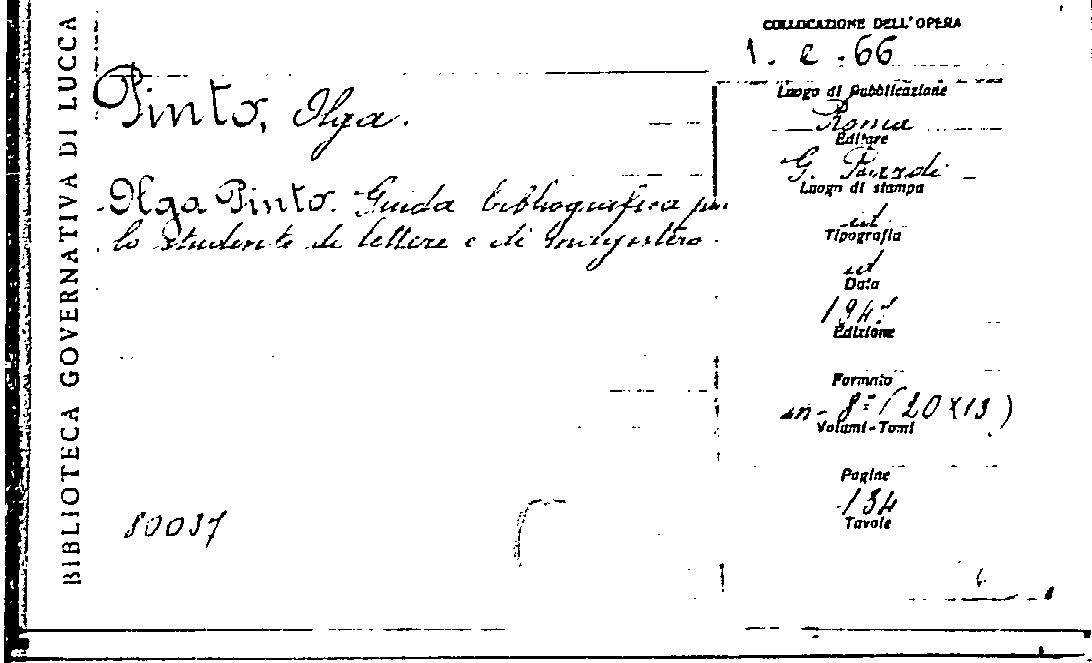 BIBLIOTECA GOVERNATIVA DI LUCCA
COLLOCAZIONE DELL'OPERA
1. e. 66
Pinto, Olga.
Luogo di Pubblicazione
Roma
Editore
G.
Luogo di stampa
id
Tipografia
id
Data
1947
Edizione
Formato
in-8º (20x13)
Volumi-Tomi
Pagine
134
Tavole
Olga Pinto. Guida bibliografica per
lo studente di lettere e di magistero.
80037